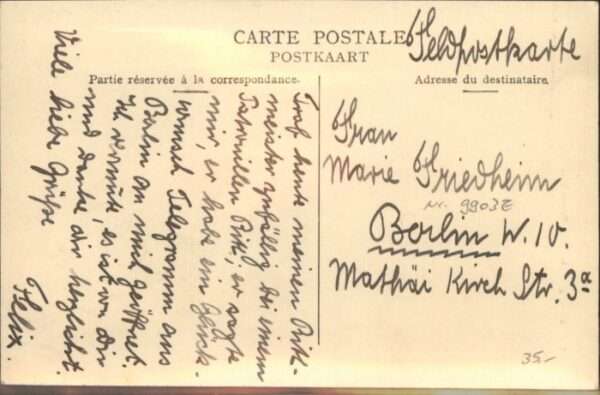 CARTE POSTALE
POSTKAART
Feldpostkarte
Partie réservée à la correspondance.
Adresse du destinataire.
Traf heute meinen Ritt-
meister zufällig bei einem
Patrouillen Ritt; er sagte
mir, er habe ein Glück-
wunsch Telegramm aus
Berlin an mich geöffnet.
Ich vermute, es ist von Dir
und danke dir herzlichst.
Viele liebe Grüße
Felix.
Frau
Marie Friedheim
nr. 9903E
Berlin W. 10.
Mathäi Kirch Str. 3a
35.-